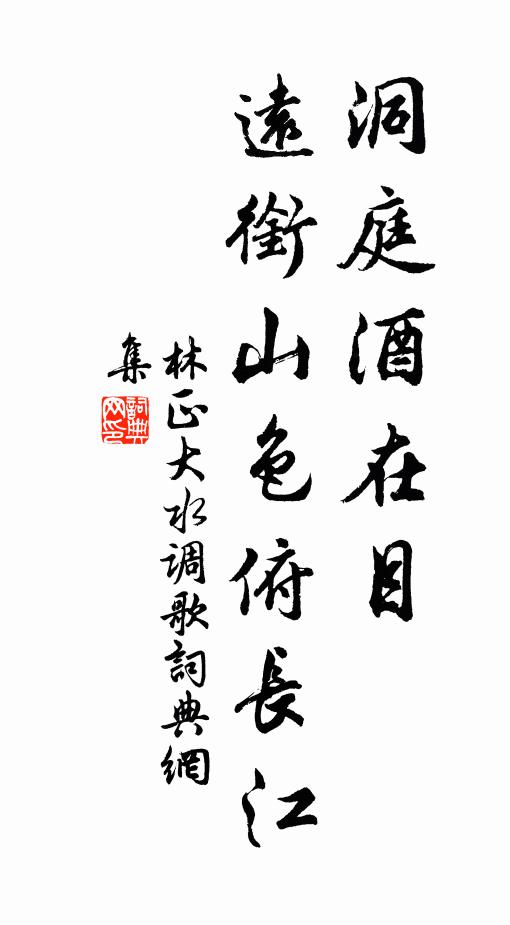 洞庭酒在目
遠銜山色俯長江
林正大水调歌詞典網
集
詞典网印